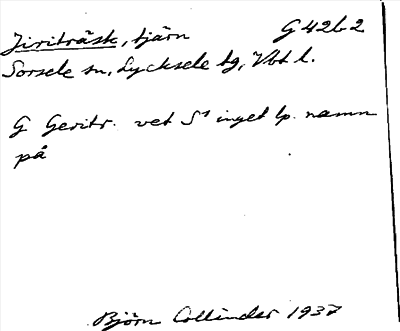 Jiriträsk, tjärn G 42b2
Sorsele sn, Lycksele tg, Vbt l.
G Geritr. vet S¹ inget lp. namn
på
Björn Collinder 1937